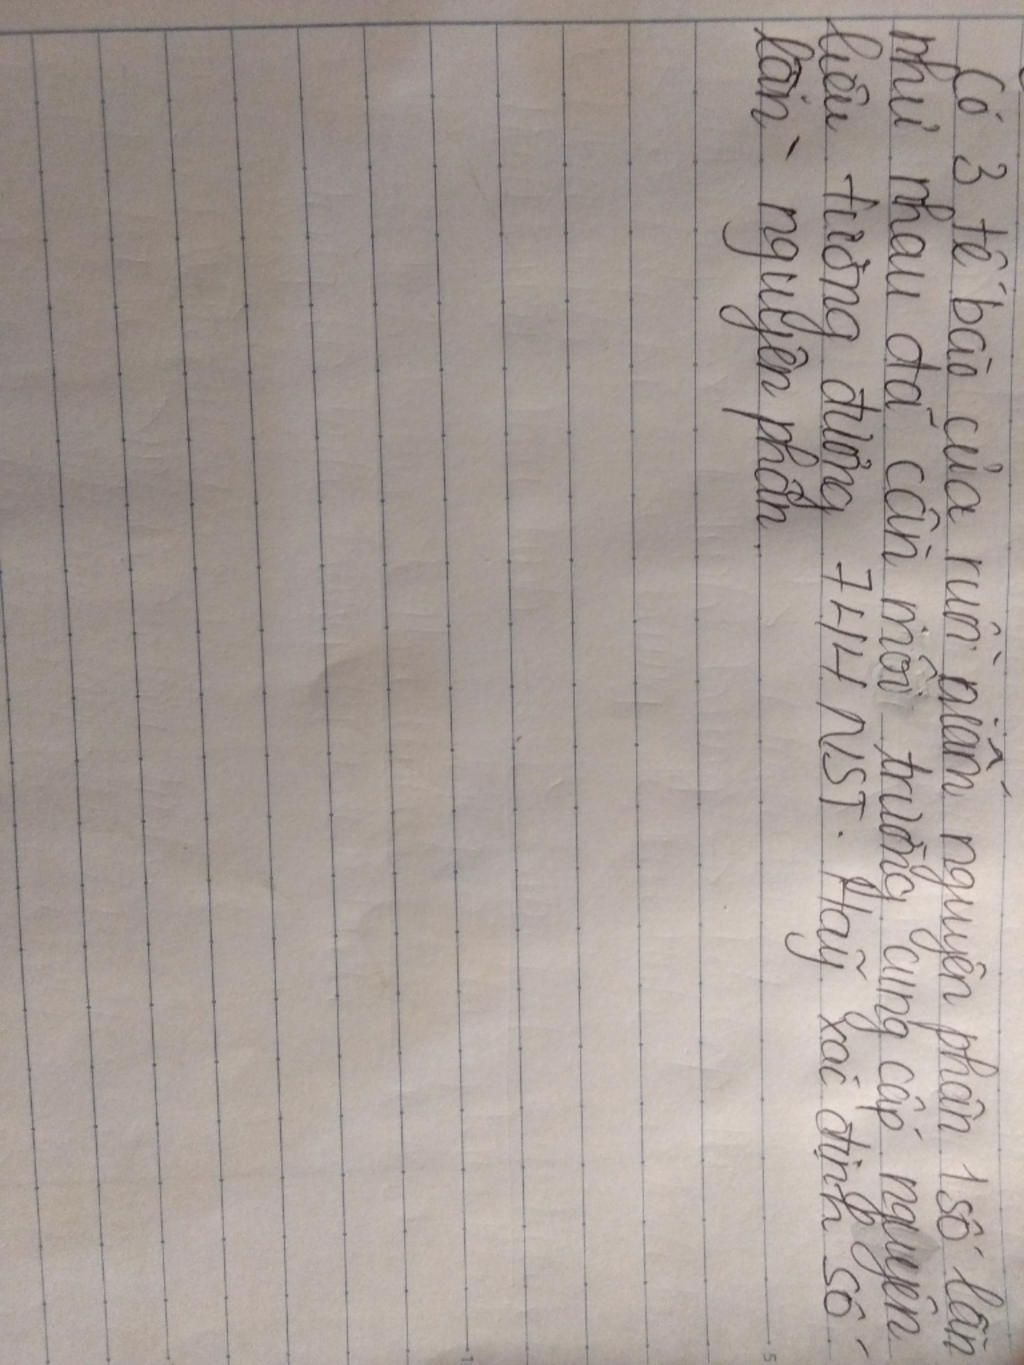 Có 3 tế bào của ruồi giấm nguyên phân 1 số lần
như nhau đã cần môi trường cung cấp nguyên
liệu tương đương 744 NST. Hãy xác định số
lần nguyên phân